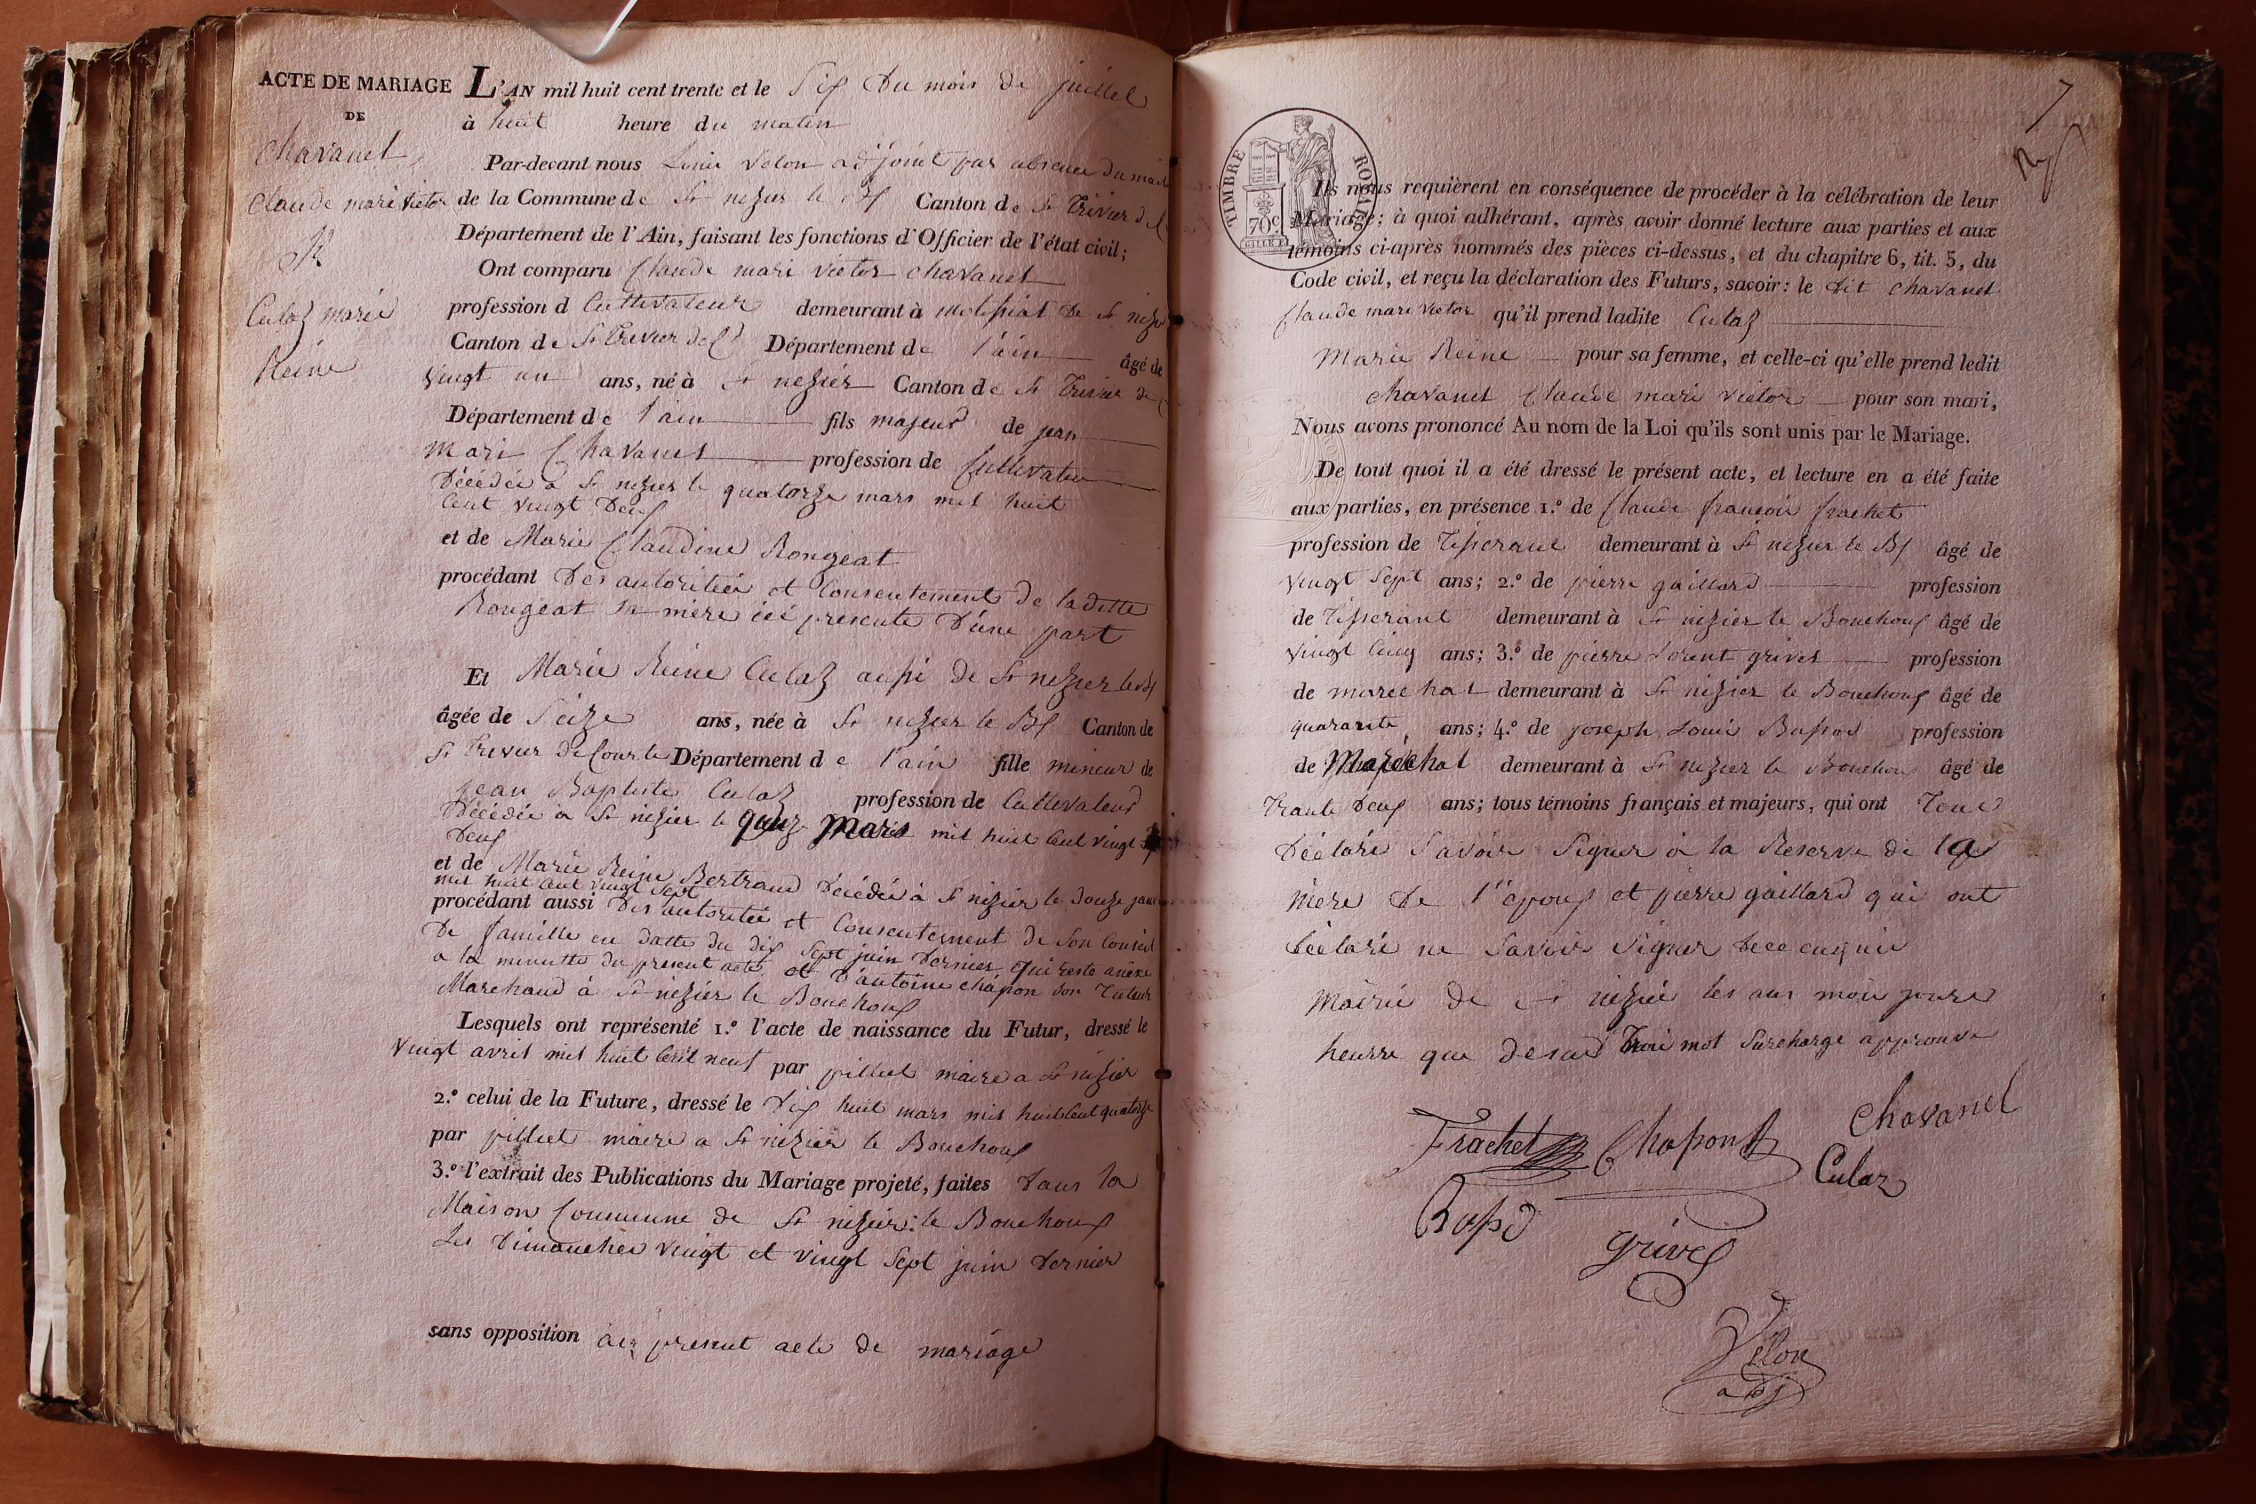 ACTE DE MARIAGE
DE
Chavanet
Claude mari victor
&
Culaz marie
Reine
L'AN mil huit cent trente et le Six Du mois de juillet
à huit heure du matin
Par-devant nous Louis Velon adjoint par absence du maire
de la Commune de St nezier le Bx Canton de St Trivier de C
Département de l'Ain, faisant les fonctions d'Officier de l'état civil;
Ont comparu Claude mari victor chavanet
profession d Cultivateur demeurant à molissiat De St nizier
Canton de St Trevier de C Département de l'ain âgé de
vingt un ans, né à St nezier Canton de St Trivier de C
Département de l'ain fils majeur de jean
mari Chavanet profession de Cultivateur
Décédée a St nezier le quatorze mars mil huit
Cent vingt Deux
et de Marie Claudine Rongeat
procédant Des autoritée et Consentement de la ditte
Rongeat sa mère ici presente D'une part
Et Marie Reine Culaz aussi de St nezier le Bx
âgée de Seize ans, née à St nezier le Bx Canton de
St Trevier de Courte Département de l'ain fille mineur de
jean Baptiste Culaz profession de Cultivateur
Décédée a St nizier le quinze Mars mil huit Cent vingt
Deux
et de Marie Reine Bertrand Décédée à St nizier le Douze janvier
mil huit Cent vingt Sept
procédant aussi Des autoritée et Consentement de Son Conseil
De famille en datte du dix Sept juin Dernier qui reste anexé
a la minutte du present acte, et D'antoine chapon son Tuteur
Marchand à St nezier le Bouchoux
Lesquels ont représenté 1.º l'acte de naissance du Futur, dressé le
vingt avril mil huit Cent neuf par pilliet maire a St nizier
2.º celui de la Future, dressé le Dix huit mars mil huit Cent quatorze
par pilliet maire a St nizier le Bouchoux
3.º l'extrait des Publications du Mariage projeté, faites Dans la
Maison Commune de St nizier le Bouchoux
Les Dimanches vingt et vingt Sept juin Dernier
sans opposition au present acte de mariage
7
TIMBRE ROYAL
70c
Ils nous requièrent en conséquence de procéder à la célébration de leur
Mariage; à quoi adhérant, après avoir donné lecture aux parties et aux
témoins ci-après nommés des pièces ci-dessus, et du chapitre 6, tit. 5, du
Code civil, et reçu la déclaration des Futurs, savoir: le Dit chavanet
Claude mari victor qu'il prend ladite Culaz
Marie Reine pour sa femme, et celle-ci qu'elle prend ledit
chavanet Claude mari victor pour son mari,
Nous avons prononcé Au nom de la Loi qu'ils sont unis par le Mariage.
De tout quoi il a été dressé le présent acte, et lecture en a été faite
aux parties, en présence 1.º de Claude francois frachet
profession de Tisserant demeurant à St nezier le Bx âgé de
vingt Sept ans; 2.º de pierre gaillard profession
de Tisserant demeurant à St nizier le Bouchoux âgé de
vingt Cinq ans; 3.º de pierre Lorent grivel profession
de marechal demeurant à St nizier le Bouchoux âgé de
quarante ans; 4.º de joseph Louis profession
de Marechal demeurant à St nezier le Bouchoux âgé de
Trante Deux ans; tous témoins français et majeurs, qui ont Tous
Déclaré Savoir Signer à la Reserve de la
Mère De l'époux et pierre gaillard qui ont
Déclaré ne Savoir Signer Dece enquis
Mairie de St nizier les ans mois jours
heurre que desus Troi mot Surcharge approuve
Frachet Chapon Chavanel
Culaz
grivel
Vélon
adj